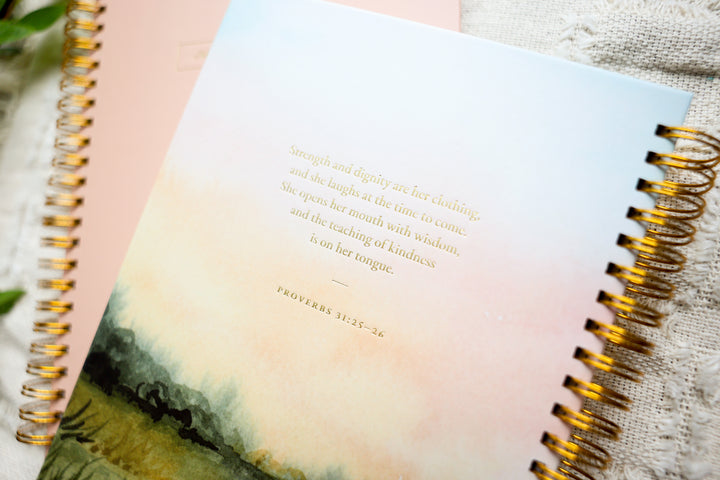 Strength and dignity are her clothing,
and she laughs at the time to come.
She opens her mouth with wisdom,
and the teaching of kindness
is on her tongue.
—
PROVERBS 31:25–26